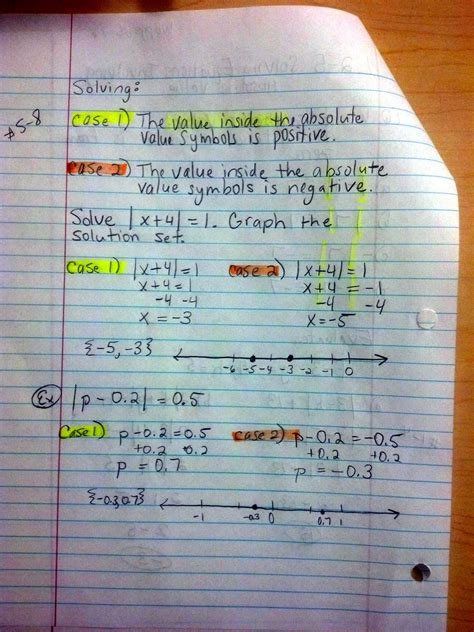 Solving:
#5-8
Case 1) The value inside the absolute
value symbols is positive.
Case 2) The value inside the absolute
value symbols is negative.
Solve |x+4| = 1. Graph the
solution set.
Case 1) |x+4| = 1 Case 2) |x+4| = 1
x+4 = 1 x+4 = -1
-4 -4 -4 -4
x = -3 x = -5
{-5, -3} -6 -5 -4 -3 -2 -1 0
Ex |p - 0.2| = 0.5
Case 1) p-0.2 = 0.5 Case 2) p-0.2 = -0.5
+0.2 0.2 +0.2 +0.2
p = 0.7 p = -0.3
{-0.3,0.7} -1 -0.3 0 0.7 1